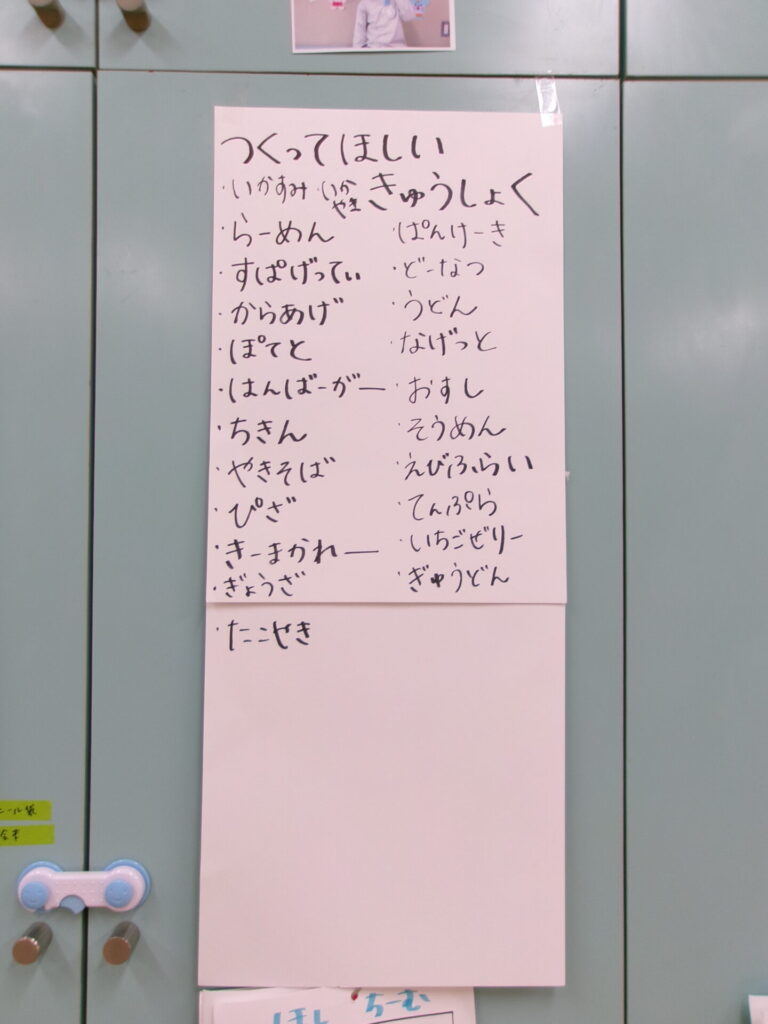 つくってほしい
・いかすみ ・いかやき きゅうしょく
・らーめん ・ぱんけーき
・すぱげってぃ ・どーなつ
・からあげ ・うどん
・ぽてと ・なげっと
・はんばーがー ・おすし
・ちきん ・そうめん
・やきそば ・えびふらい
・ぴざ ・てんぷら
・きーまかれー ・いちごぜりー
・ぎょうざ ・ぎゅうどん
・たこやき
ニール袋
ほし ちーむ